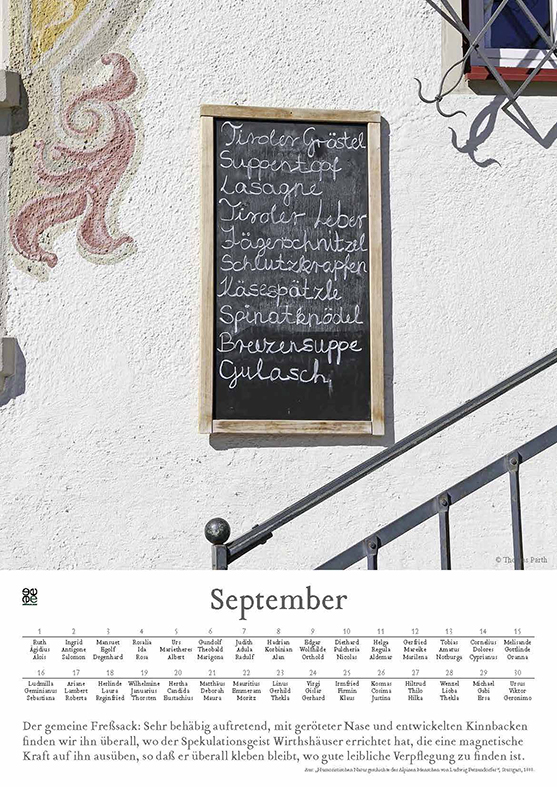 Tiroler Gröstel
Suppentopf
Lasagne
Tiroler Leber
Jägerschnitzel
Schlutzkrapfen
Käsespätzle
Spinatknödel
Brezensuppe
Gulasch
© Thomas Parth
September
1 2 3 4 5 6 7 8 9 10 11 12 13 14 15
Ruth Ingrid Mansuet Rosalia Urs Gundolf Judith Hadrian Edgar Diethard Helga Gerfried Tobias Cornelius Melisande
Ägidius Antigone Egolf Ida Mariatheres Theobald Adula Korbinian Wolfhilde Pulcheria Regula Mareike Amatus Dolores Gottlinde
Alois Salomon Degenhard Rosa Albert Marigona Radulf Alan Orthold Nicolas Aldemar Marilena Notburga Cyprianus Oranna
16 17 18 19 20 21 22 23 24 25 26 27 28 29 30
Ludmilla Ariane Herlinde Wilhelmine Hertha Matthäus Mauritius Linus Virgi Irmfried Kosmas Hiltrud Wenzel Michael Ursus
Geminianus Lambert Laura Januarius Candida Deborah Emmeram Gerhild Gislar Firmin Cosima Thilo Lioba Gabi Viktor
Sebastiana Roberta Reginfried Thorsten Eustachius Maura Moritz Thekla Gerhard Klaus Justina Hilka Thekla Ersa Geronimo
Der gemeine Freßsack: Sehr behäbig auftretend, mit geröteter Nase und entwickelten Kinnbacken
finden wir ihn überall, wo der Spekulationsgeist Wirthshäuser errichtet hat, die eine magnetische
Kraft auf ihn ausüben, so daß er überall kleben bleibt, wo gute leibliche Verpflegung zu finden ist.
Aus: „Humoristischen Naturgeschichte des Alpinen Menschen von Ludwig Petzendorfer“, Stuttgart,